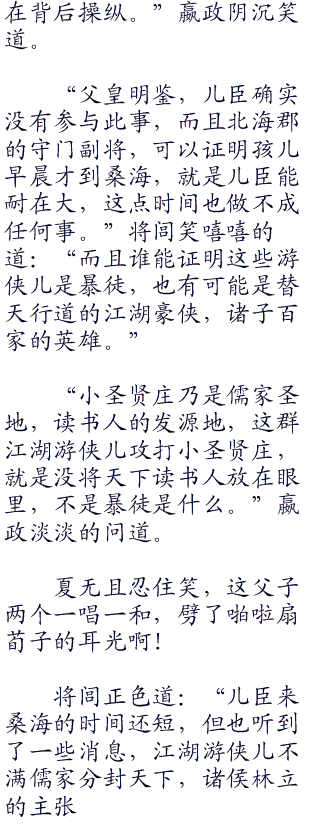 在背后操纵。”嬴政阴沉笑
道。
“父皇明鉴，儿臣确实
没有参与此事，而且北海郡
的守门副将，可以证明孩儿
早晨才到桑海，就是儿臣能
耐在大，这点时间也做不成
任何事。”将闾笑嘻嘻的
道：“而且谁能证明这些游
侠儿是暴徒，也有可能是替
天行道的江湖豪侠，诸子百
家的英雄。”
“小圣贤庄乃是儒家圣
地，读书人的发源地，这群
江湖游侠儿攻打小圣贤庄，
就是没将天下读书人放在眼
里，不是暴徒是什么。”嬴
政淡淡的问道。
夏无且忍住笑，这父子
两个一唱一和，劈了啪啦扇
荀子的耳光啊！
将闾正色道：“儿臣来
桑海的时间还短，但也听到
了一些消息，江湖游侠儿不
满儒家分封天下，诸侯林立
的主张